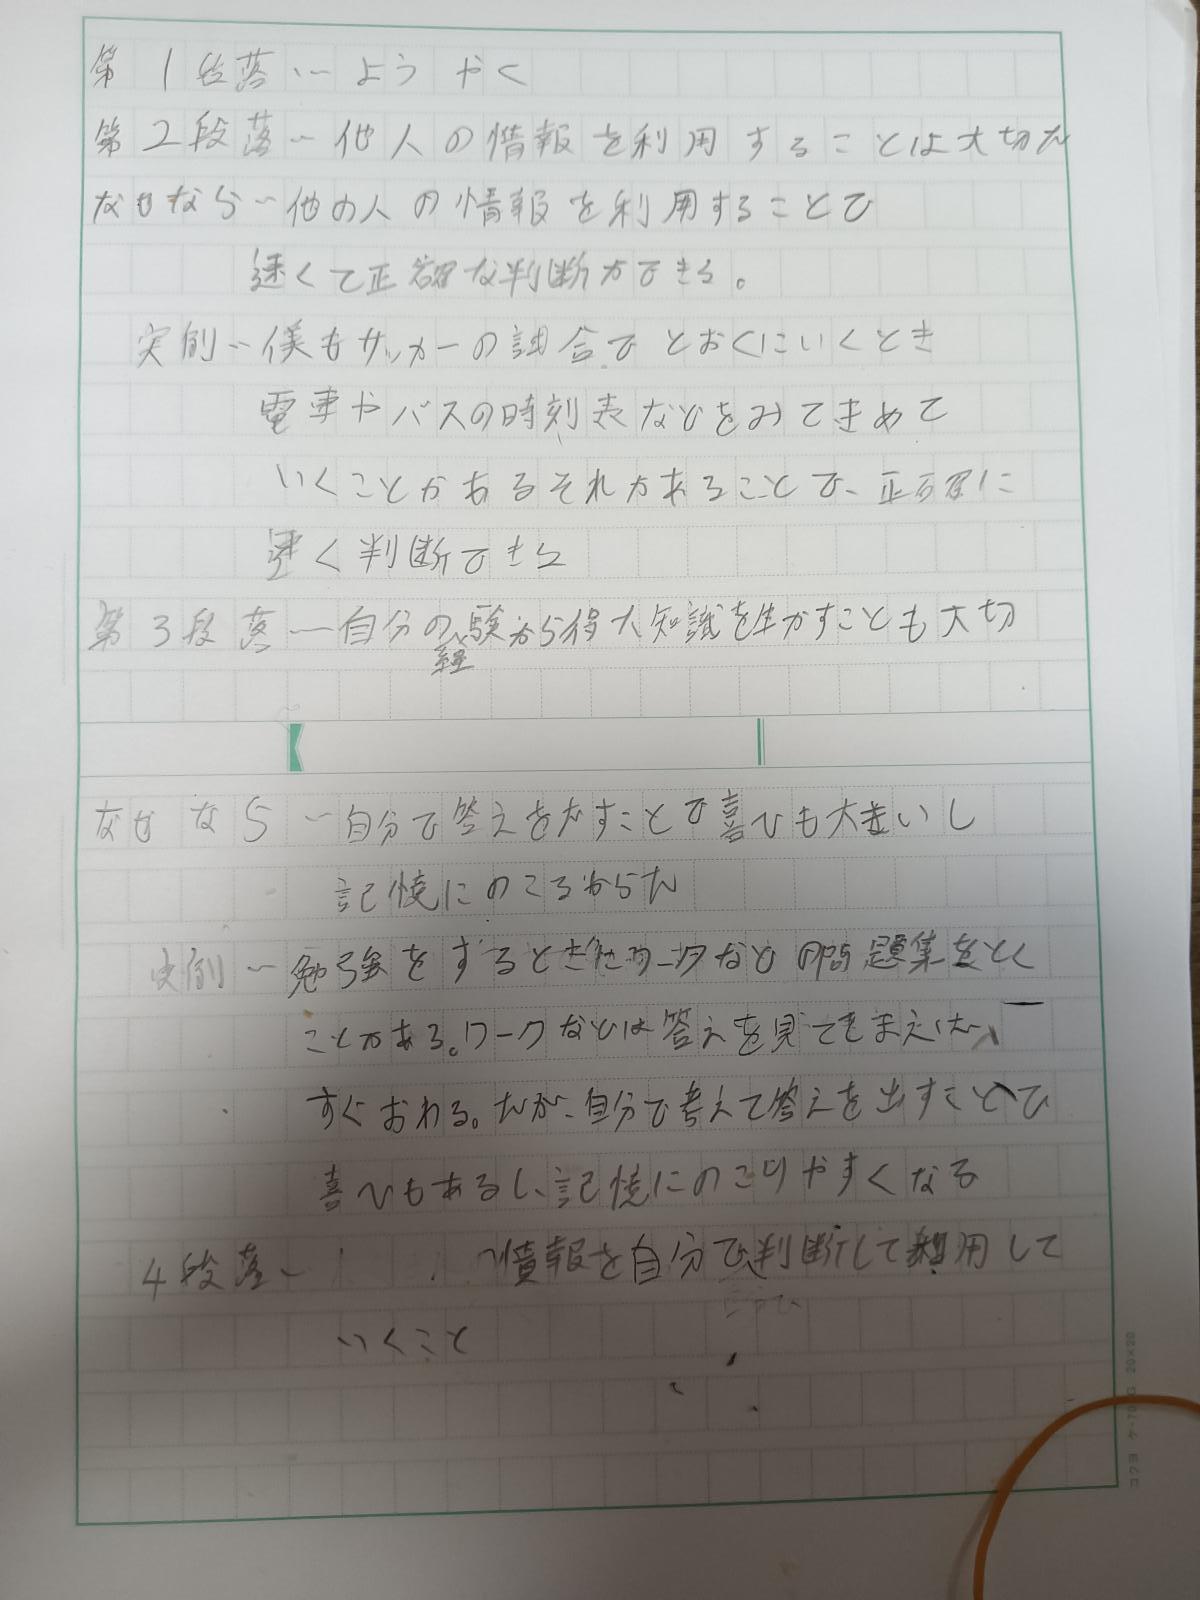 第1段落…ようやく
第2段落…他人の情報を利用することは大切だ
なぜなら…他の人の情報を利用することで
速くて正確な判断ができる。
実例…僕もサッカーの試合でとおくにいくとき
電車やバスの時刻表などをみてきめて
いくことがあるそれがあることで、正確に
速く判断できる
第3段落…自分の経験から得た知識を生かすことも大切
なぜなら…自分で答えをだすことで喜びも大きいし
記憶にのこるからだ
実例…勉強をするときにワークなどの問題集をとく
ことがある。ワークなどは答えを見てしまえば
すぐおわる。だが、自分で考えて答えを出すことで
喜びもあるし、記憶にのこりやすくなる
4段落… 情報を自分で判断して利用して
いくこと
コクヨ ケ-70 20×20